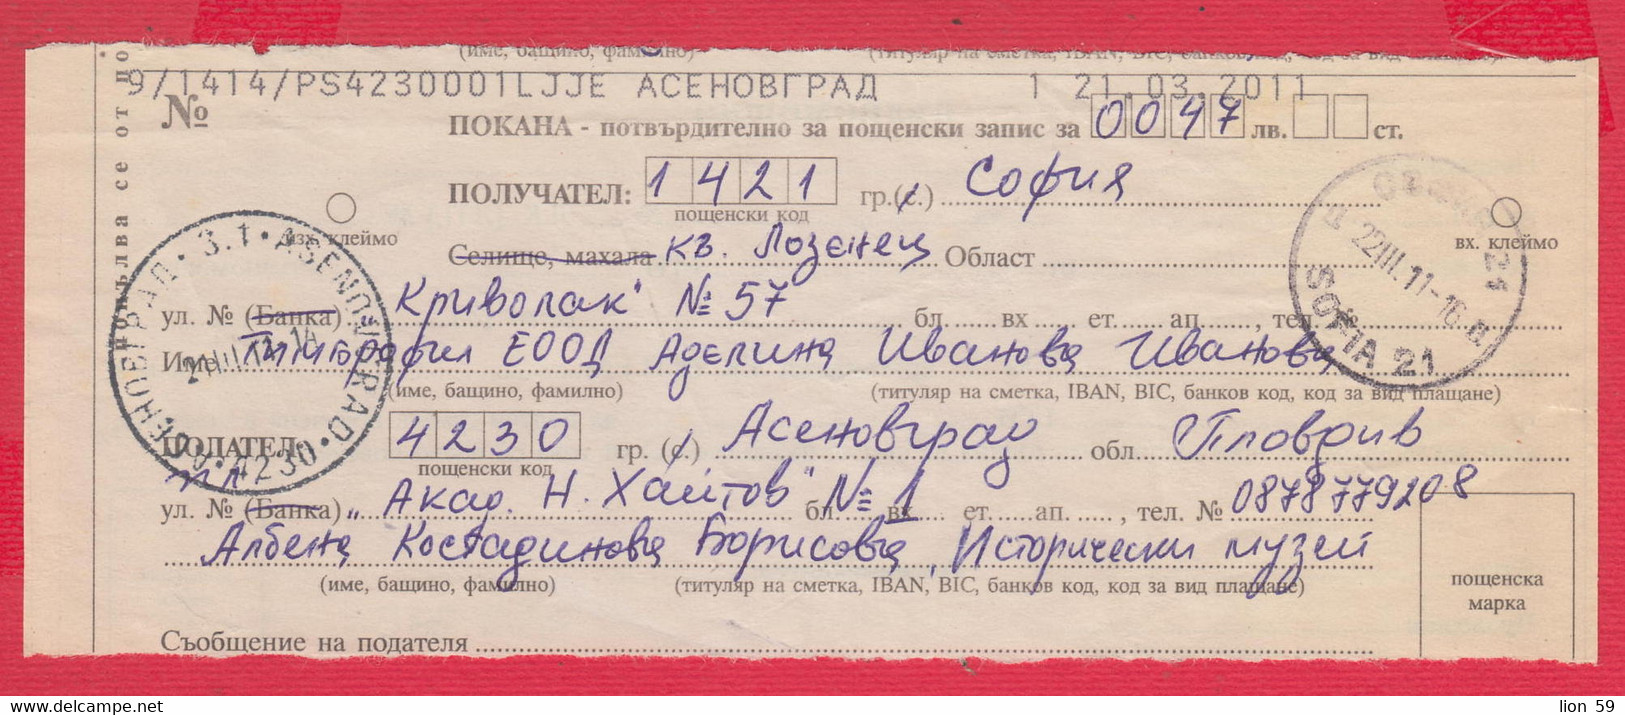 (име, бащино, фамилно) (титуляр на сметка, IBAN, BIC, банков код, код за вид плащане)
9/1414/PS4230001LJJE АСЕНОВГРАД 1 21.03.2011
№
ПОКАНА - потвърдително за пощенски запис за 0047 лв. ст.
ПОЛУЧАТЕЛ: 1421 гр.(с.) София
пощенски код
изх. клеймо
вх. клеймо
Селище, махала кв. Лозенец Област
ул. № (Банка) Криволак" № 57 бл. вх. ет. ап. , тел.
Име Тимбрафил ЕООД Аделина Иванова Иванова
(име, бащино, фамилно) (титуляр на сметка, IBAN, BIC, банков код, код за вид плащане)
ПОДАТЕЛ: 4230 гр. (с.) Асеновград обл. Пловдив
пощенски код
пл.
ул. № (Банка) „Акад. Н. Хайтов" № 1 бл. вх. ет. ап. , тел. № 0878779208
Албена Костадинова Борисова, Исторически музей
(име, бащино, фамилно) (титуляр на сметка, IBAN, BIC, банков код, код за вид плащане)
пощенска
марка
Съобщение на подателя
попълва се от по
АСЕНОВГРАД · 3.1 · ASENOVGRAD · 4230
SOFIA 21
22III.11-16
lion 59